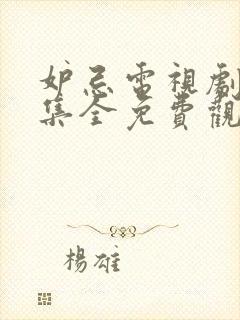 妒忌電視劇
集全免費觀
楊雄